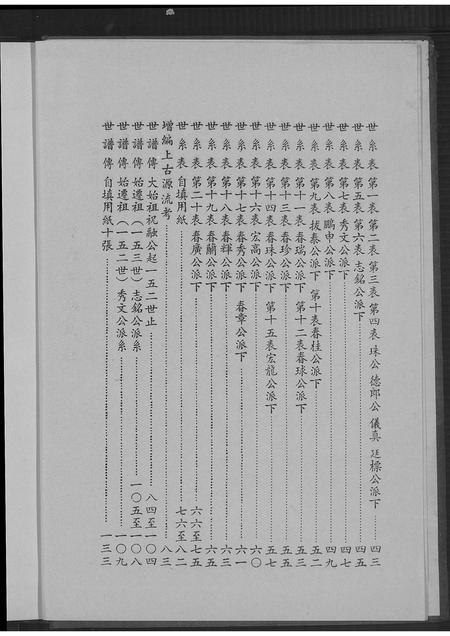 世系表 第一表 第二表 第三表 第四表 珠公 德郎公 儀真 廷標公派下 四三
世系表 第五表 第六表 志銘公派下 四五
世系表 第七表 秀文公派下 四七
世系表 第八表 鵬申公派下 四九
世系表 第九表 拔泰公派下 第十表春桂公派下 五二
世系表 第十一表 春瑞公派下 第十二表春球公派下 五五
世系表 第十三表 春珍公派下 五五
世系表 第十四表 春珠公派下 第十五表宏龍公派下 五七
世系表 第十六表 宏高公派下 六〇
世系表 第十七表 春秀公派下 春章公派下 六一
世系表 第十八表 春輝公派下 六三
世系表 第十九表 春蘭公派下 六五
世系表 第二十表 春廣公派下 六六至七五
世系表 自填用紙 七六至八二
增編上古源流考 八三
世譜傳 大始祖祝融公起一五二世止 八四至一〇四
世譜傳 始遷祖(一五三世)志銘公派系 一〇五至一〇八
世譜傳 始遷祖(一五二世)秀文公派系 一〇九
世譜傳 自填用紙十張 一三三